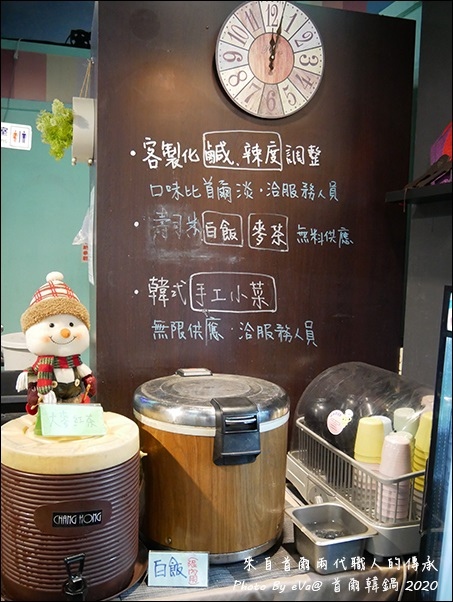 ・客製化鹹、辣度調整
口味比首爾淡,洽服務人員
・壽司米白飯 麥茶 無料供應
・韓式手工小菜
無限供應,洽服務人員
CHANG HONG
白飯
來自首爾兩代職人的傳承
Photo By eVa@ 首爾韓鍋 2020